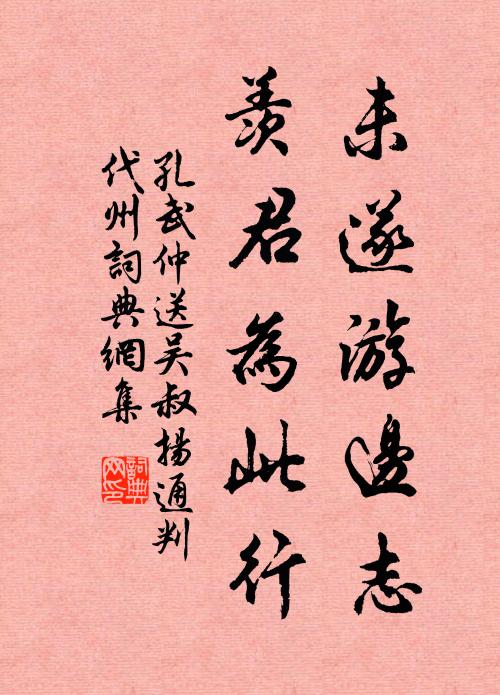 未遂游邊志
羨君為此行
孔武仲送吴叔揚通判
代州詞典網集
詞典網印